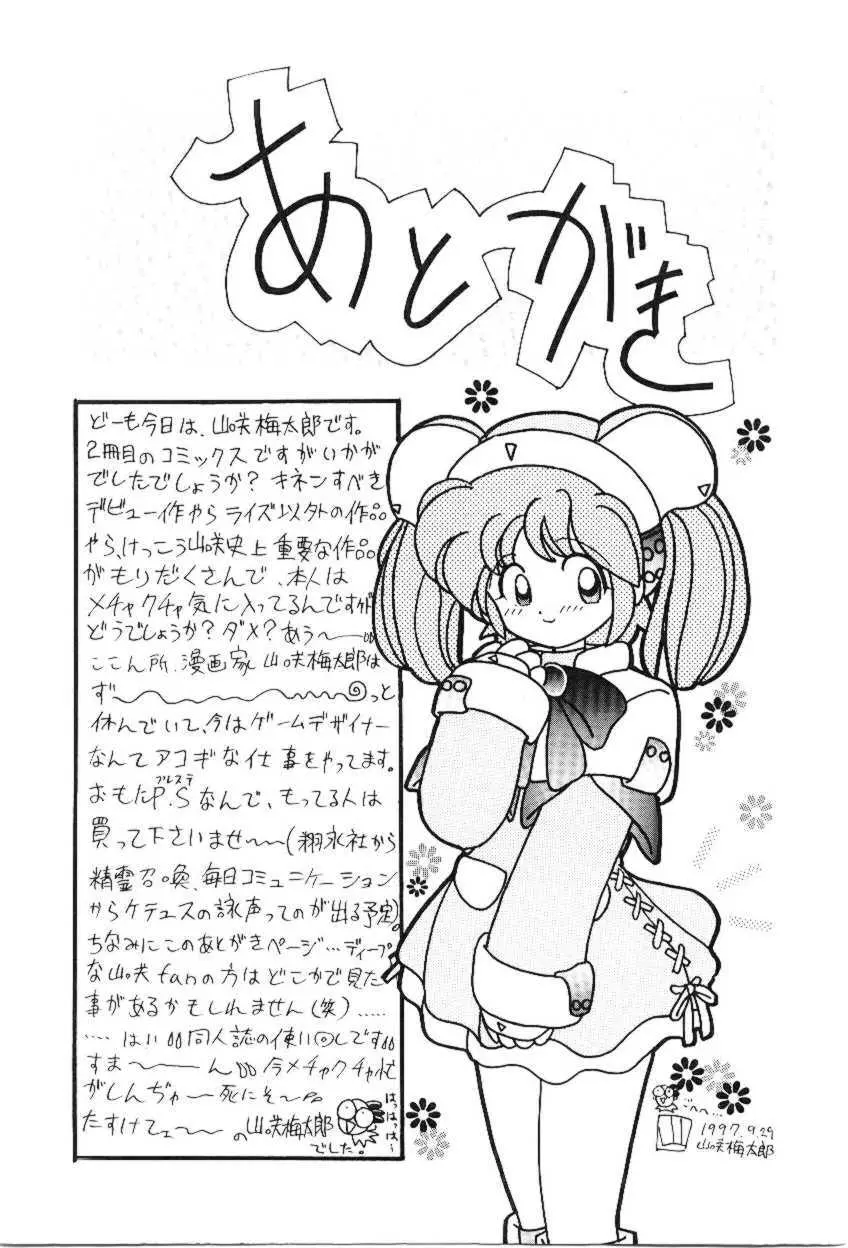 あとがき
どーも今日は、山咲梅太郎です。
2冊目のコミックスですがいかが
でしたでしょうか？キネンすべき
デビュー作やらライズ以外の作品
やら、けっこう山咲史上重要な作品
がもりだくさんで、本人は
メチャクチャ気に入ってるんですけど
どうでしょうか？ダメ？あぅ〜
ここん所、漫画家山咲梅太郎は
ず〜〜〜っと
休んでいて、今はゲームデザイナー
なんてアコギな仕事をやってます。
おもたP.Sなんで、もってる人は
プレステ
買って下さいませ〜〜(翔泳社から
精霊召喚、毎日コミュニケーション
からケテュースの詠声ってのが出る予定)。
ちなみにこのあとがきページ…ディープ
な山咲fanの方はどこかで見た
事があるかもしれません(笑)……
……はい同人誌の使い回しです
すま〜〜ん 今メチャクチャ忙
がしんぢゃ〜死にそ〜
たすけてェ〜〜の山咲梅太郎
でした。
はっはっはー
へへ…
山
1997.9.29
山咲梅太郎